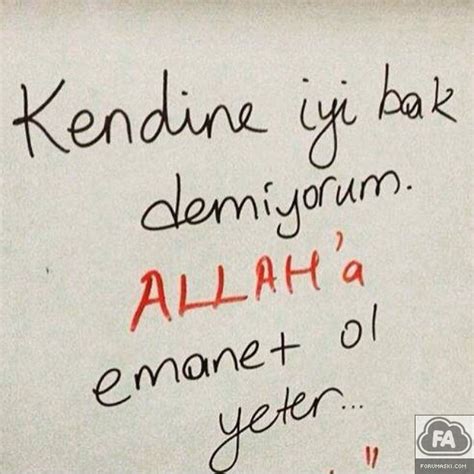 Kendine iyi bak
demiyorum.
ALLAH'a
emanet ol
yeter...
"
FA
FORUMASKI.COM